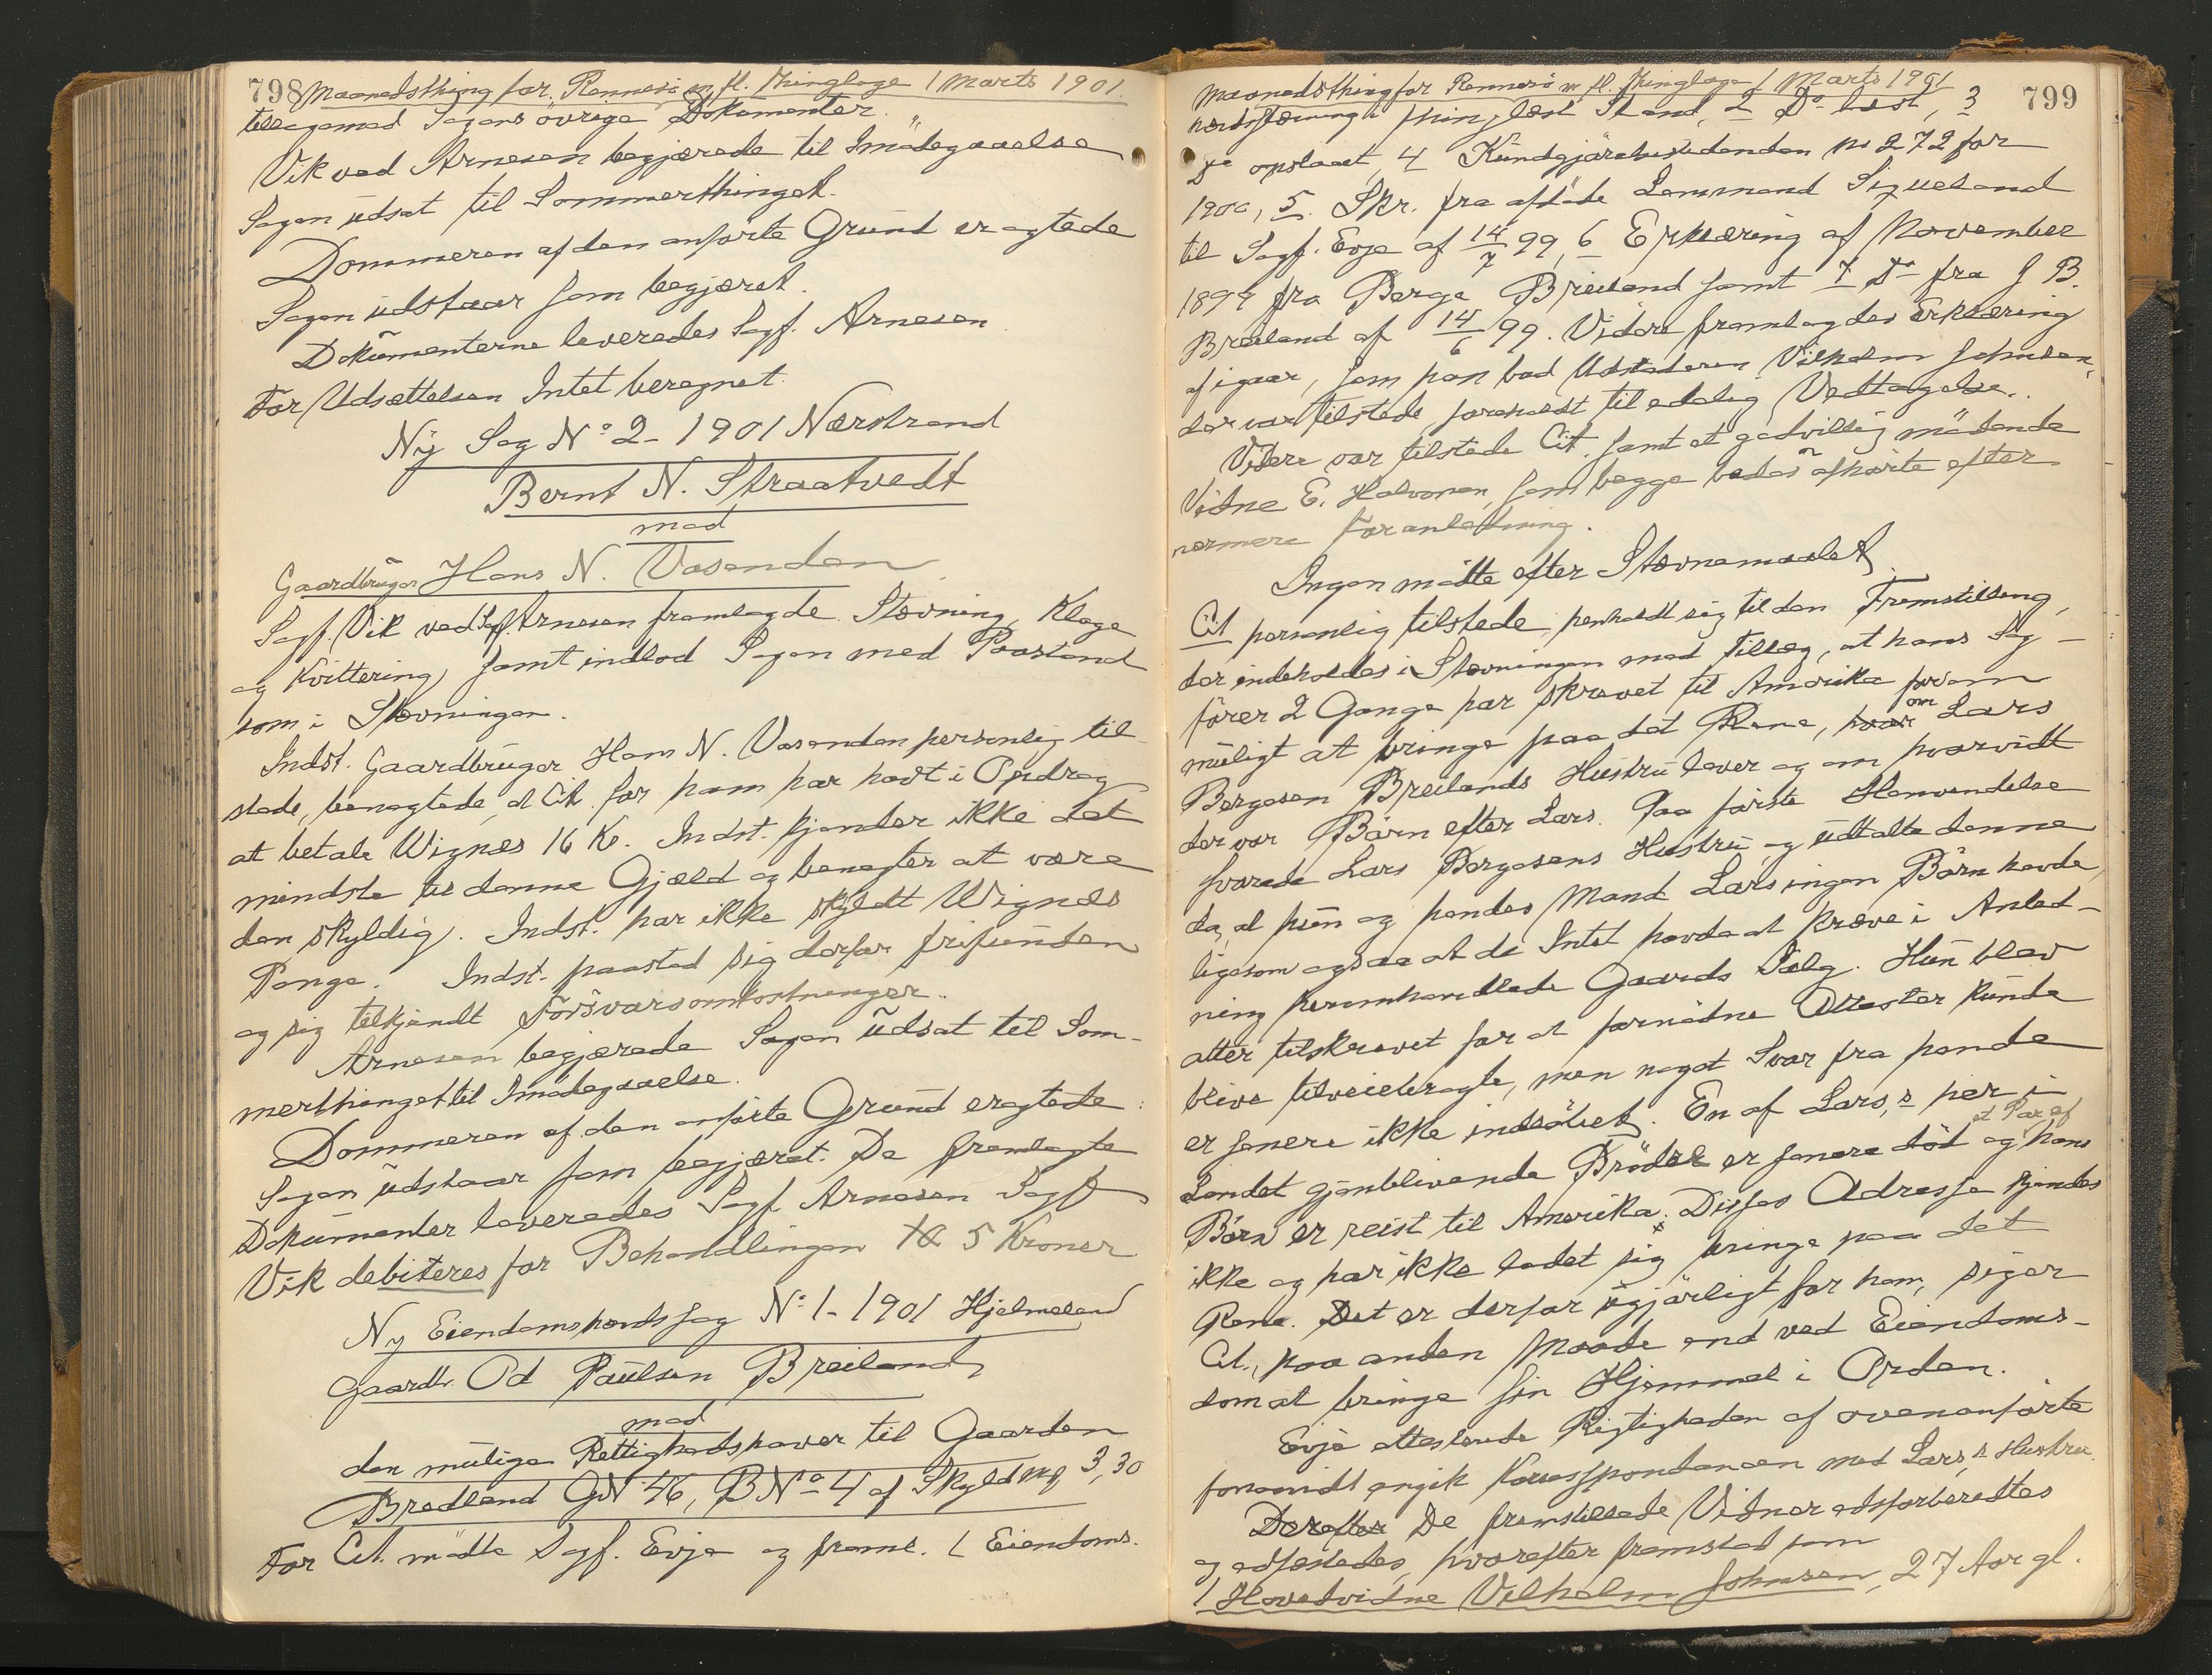 798 Maanedsthing for Rennesö m. fl. Thinglage 1 Marts 1901.
tilligemed Sagens övrige Dokumenter.
Vik ved Arnesen begjærede til Imödegaaelse
Sagen udsat til Sommerthinget.
Dommeren af den anförte Grund eragtede
Sagen udstaar som begjæret.
Dokumenterne leveredes Sagf. Arnesen
For Udsættelsen Intet beregnet.
Ny Sag No 2 - 1901 Nærstrand
Bernt N. Straatvedt
mod
Gaardbruger Hans N. Vasenden
Sagf. Vik ved Sagf. Arnesen fremlagde Stevning, Klage
og Kvittering samt indlod Sagen med Paastand
som i Stevningen.
Indst. Gaardbruger Hans N. Vasenden personlig til-
stede, benegtede, at Cit. for ham har havt i Opdrag
at betale Wignes 16 Kr. Indst. kjender ikke det
mindste til denne Gjæld og benegter at være
den skyldig. Indst. har ikke skyldt Wignæs
Penge. Indst. paastod sig derfor frifunden
og sig tilkjendt Forsvarsomkostninger.
Arnesen begjærede Sagen udsat til Som-
merthinget til Imödegaaelse.
Dommeren af den anförte Grund eragtede:
Sagen udstaar som begjæret. De fremlagte
Dokumenter leveredes Sagf. Arnesen Sagf
Vik debiteres for Behandlingen 5 Kroner
Ny Eiendomshævdssag No 1 - 1901 Hjelmeland
Gaardbr. Od Paulsen Breiland
mod
den mulige Rettighedshaver til Gaarden
Bredland GN 46, BNo 4 af Skyld mk 3,30
For Cit. mödte Sagf. Evje og freml. 1 Eiendoms.
Maanedsthing for Rennesö m fl. Thinglage 1 Marts 1901 799
hævdsstævning i thinglæst Stand, 2 Do læst, 3
Do opslaaet, 4 Kundgjörelsestidenden No 272 for
1900, 5. Skr. fra afdöde Lensmand Sigveland
til Sagf. Evje af 14/7 99, 6 Erklæring af November
1899 fra Berge Breiland samt 7 Do fra J B.
Breiland af 14/6 99. Videre fremlagdes Erklæring
af igaar, som han bad Udstederen Vilhelm Johnsen,
der var tilstede, foreholdt til edelig Vedtagelse.
Videre var tilstede Cit. samt et godvillig mödende
Vidne E. Halvorsen, som begge bedes afhörte efter
nærmere Foranledning.
Ingen mödte efter Stævnemaalet.
Cit personlig tilstede, henholdt sig til den Fremstilling,
der indeholdes i Stevningen med Tillæg, at hans Sag-
förer 2 Gange har skrevet til Amerika for om
muligt at bringe paa det Rene, om Lars
Bergesen Breilands Hustru lever og om hvorvidt
der var Börn efter Lars. Paa förste Henvendelse
svarede Lars Bergesens Hustru og udtalte denne
da, at hun og hendes Mand Lars ingen Börn havde,
ligesom ogsaa at de Intet havde at kræve i Anled-
ning heromhandlede Gaards Salg. Hun blev
atter tilskrevet for at fornödne Attester kunde
blive tilveiebragte, men noget Svar fra hende
er senere ikke indlöbet. En af Lars,s her i
Landet gjenblivende Brödre er senere död og et Par af hans
Börn er reist til Amerika. Disses Adresse kjendes
ikke og har ikke ladet sig bringe paa det
Rene. Det er derfor ugjörligt for ham, siger
Cit., paa anden Maade end ved Eiendoms-
dom at bringe sin Hjemmel i Orden.
Evje attesterede Rigtigheden af ovenanförte
forsavidt angik Korrespondancen med Lars,s Hustru.
Derefter De fremstillede Vidner edsforberedtes
og edfæstedes, hvorefter fremstod som
1 Hovedvidne Vilhelm Johnsen, 27 Aar gl.